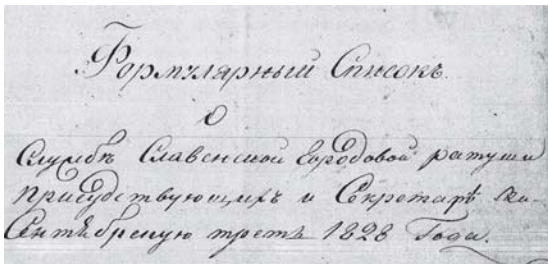 Формулярный Списокъ
О
Службѣ Славенской городовой ратуши
присудствующихъ и Секретарѣ за
Сентябрскую треть 1828 Года.